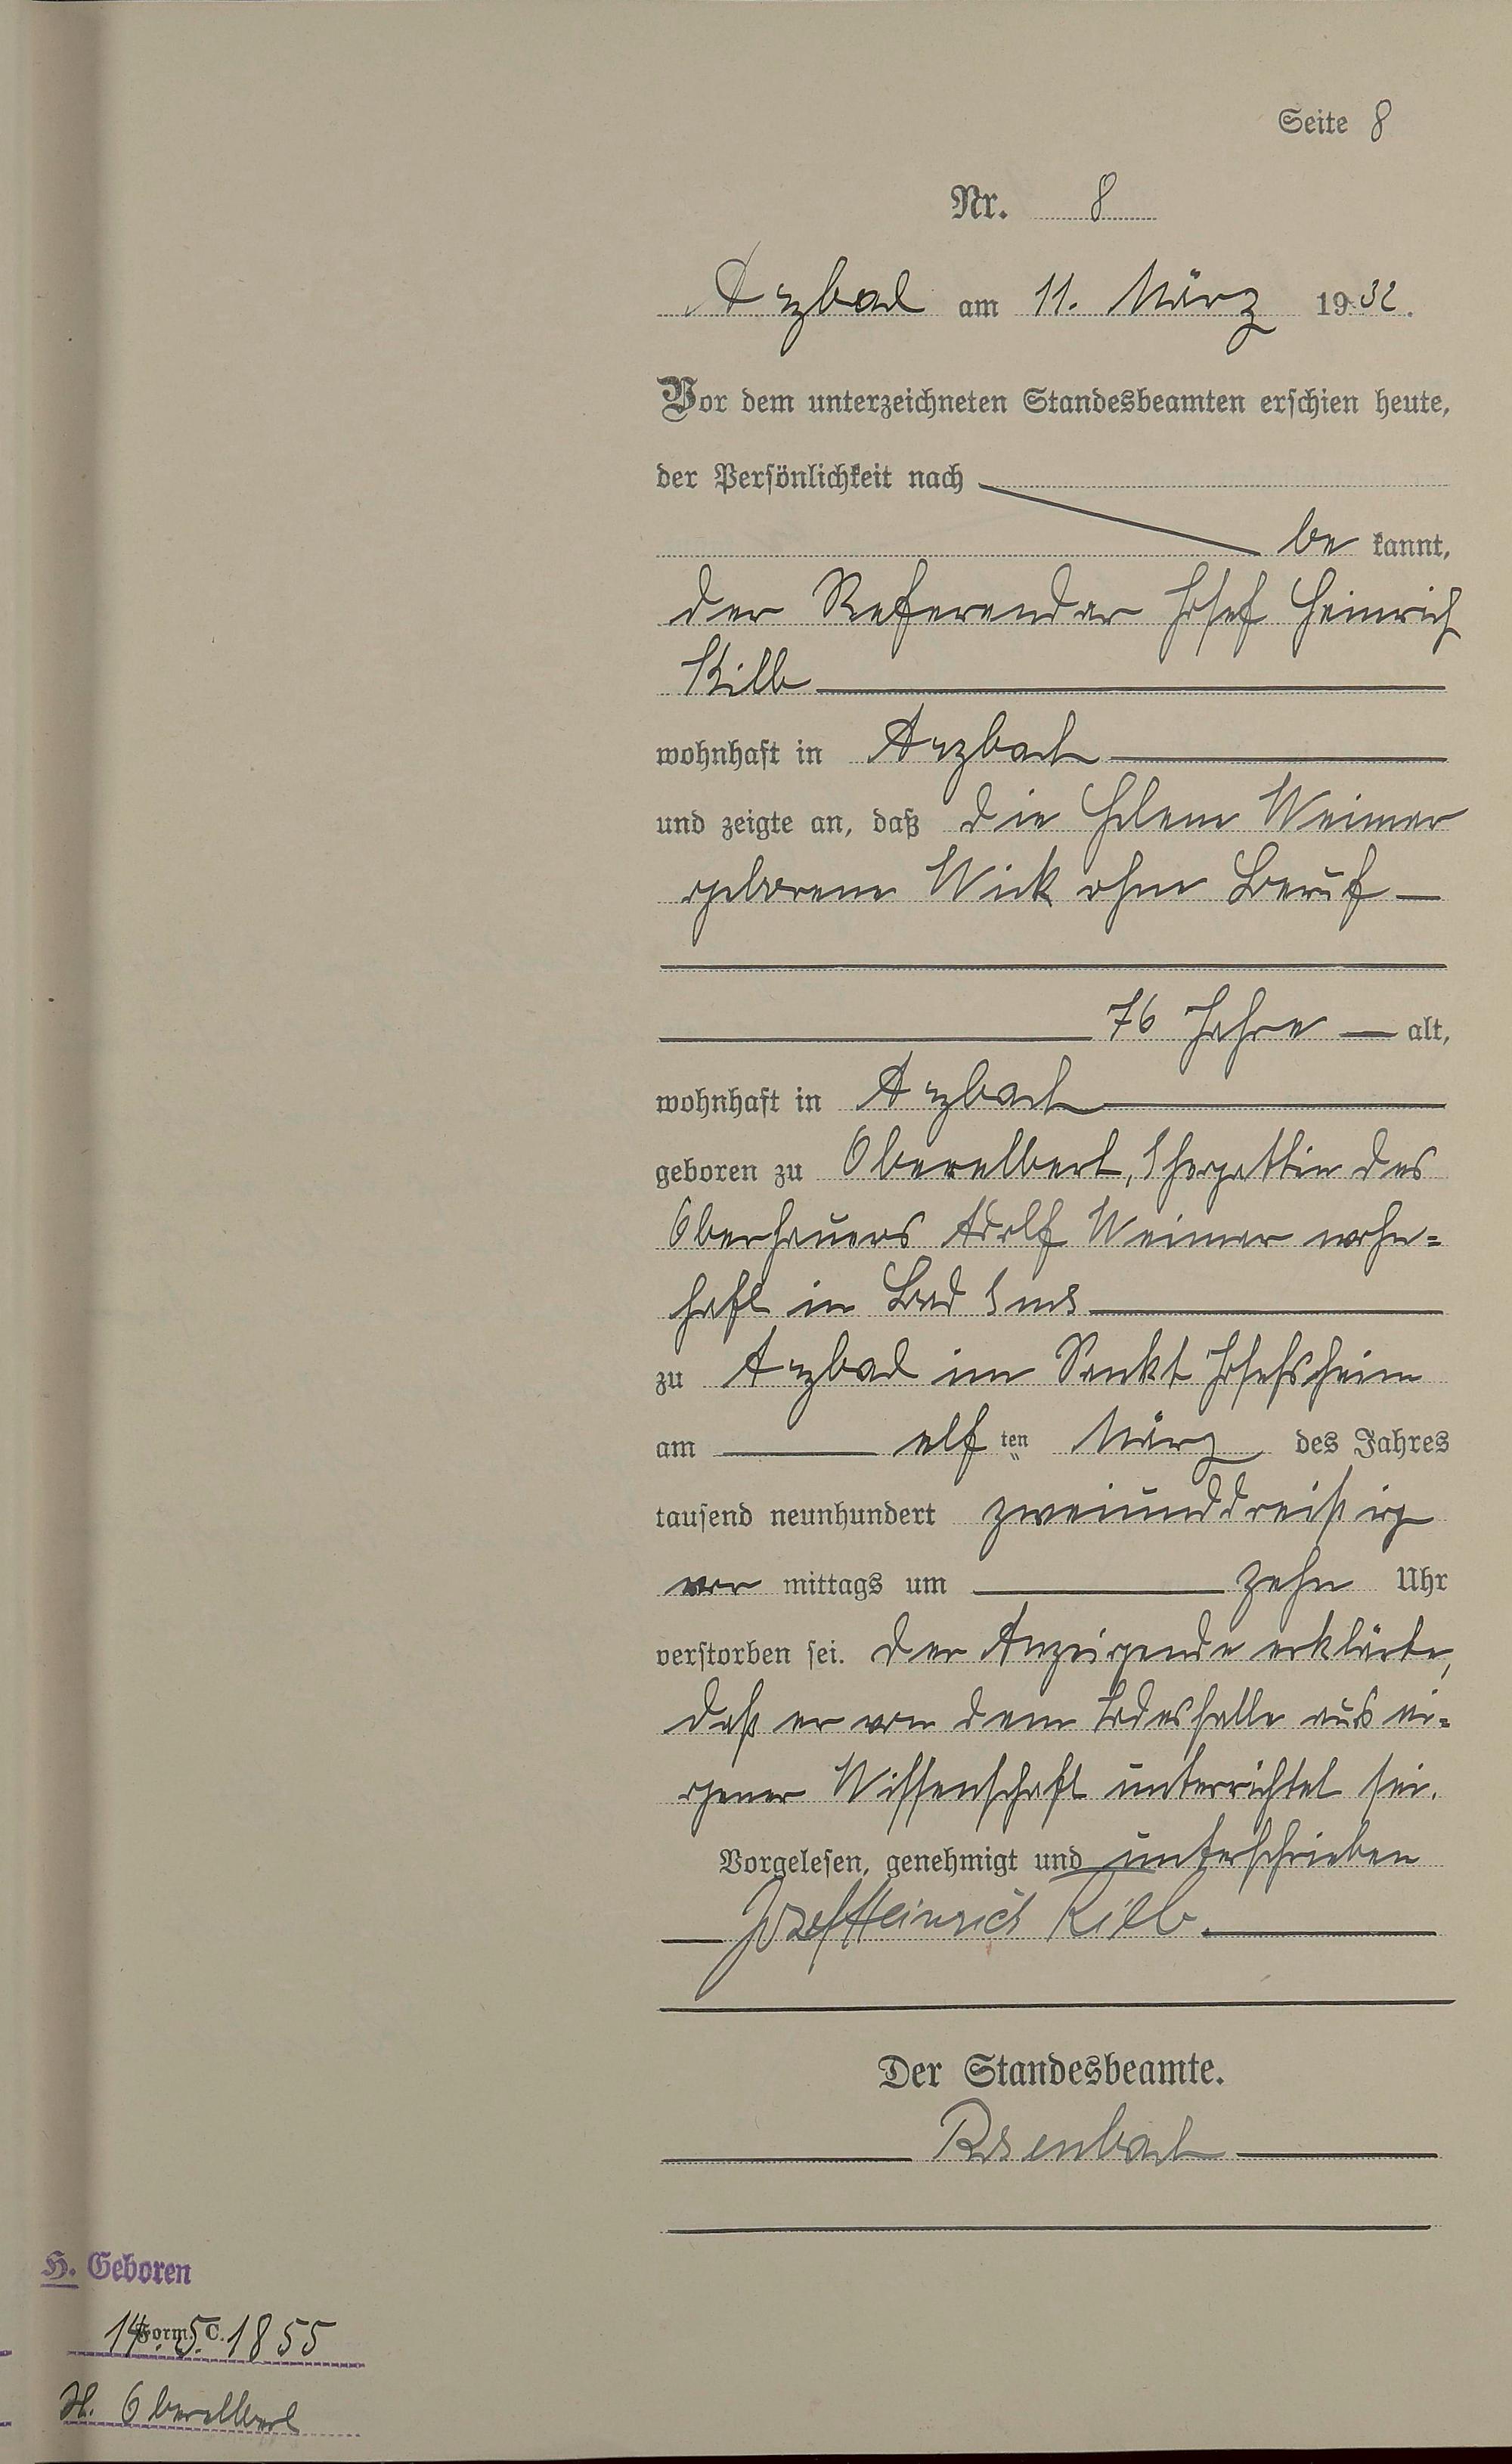 Seite 8
Nr. 8
Arzbach am 11. März 1932.
Vor dem unterzeichneten Standesbeamten erschien heute,
der Persönlichkeit nach
be kannt,
der Referendar Josef Heinrich
Kilb
wohnhaft in Arzbach
und zeigte an, daß die Helene Weimer
geborene Wick ohne Beruf
76 Jahre alt,
wohnhaft in Arzbach
geboren zu Oberelbert, Ehegattin des
Oberhauers Adolf Weimer wohn=
haft in Bad Ems
zu Arzbach im Sankt Josefsheim
am elf ten März des Jahres
tausend neunhundert zweiunddreißig
vor mittags um zehn Uhr
verstorben sei. Der Anzeigende erklärte,
daß er von dem Todesfalle aus ei=
gener Wissenschaft unterrichtet sei.
Vorgelesen, genehmigt und unterschrieben
Josef Heinrich Kilb.
Der Standesbeamte.
Rosenbach
H. Geboren
Form. C.
14. 5. 1855
St. Oberelbert